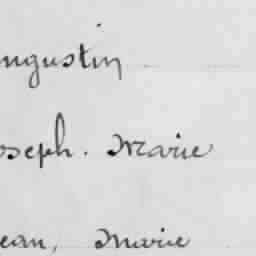 ugustin
oseph. Marie
ean, Marie